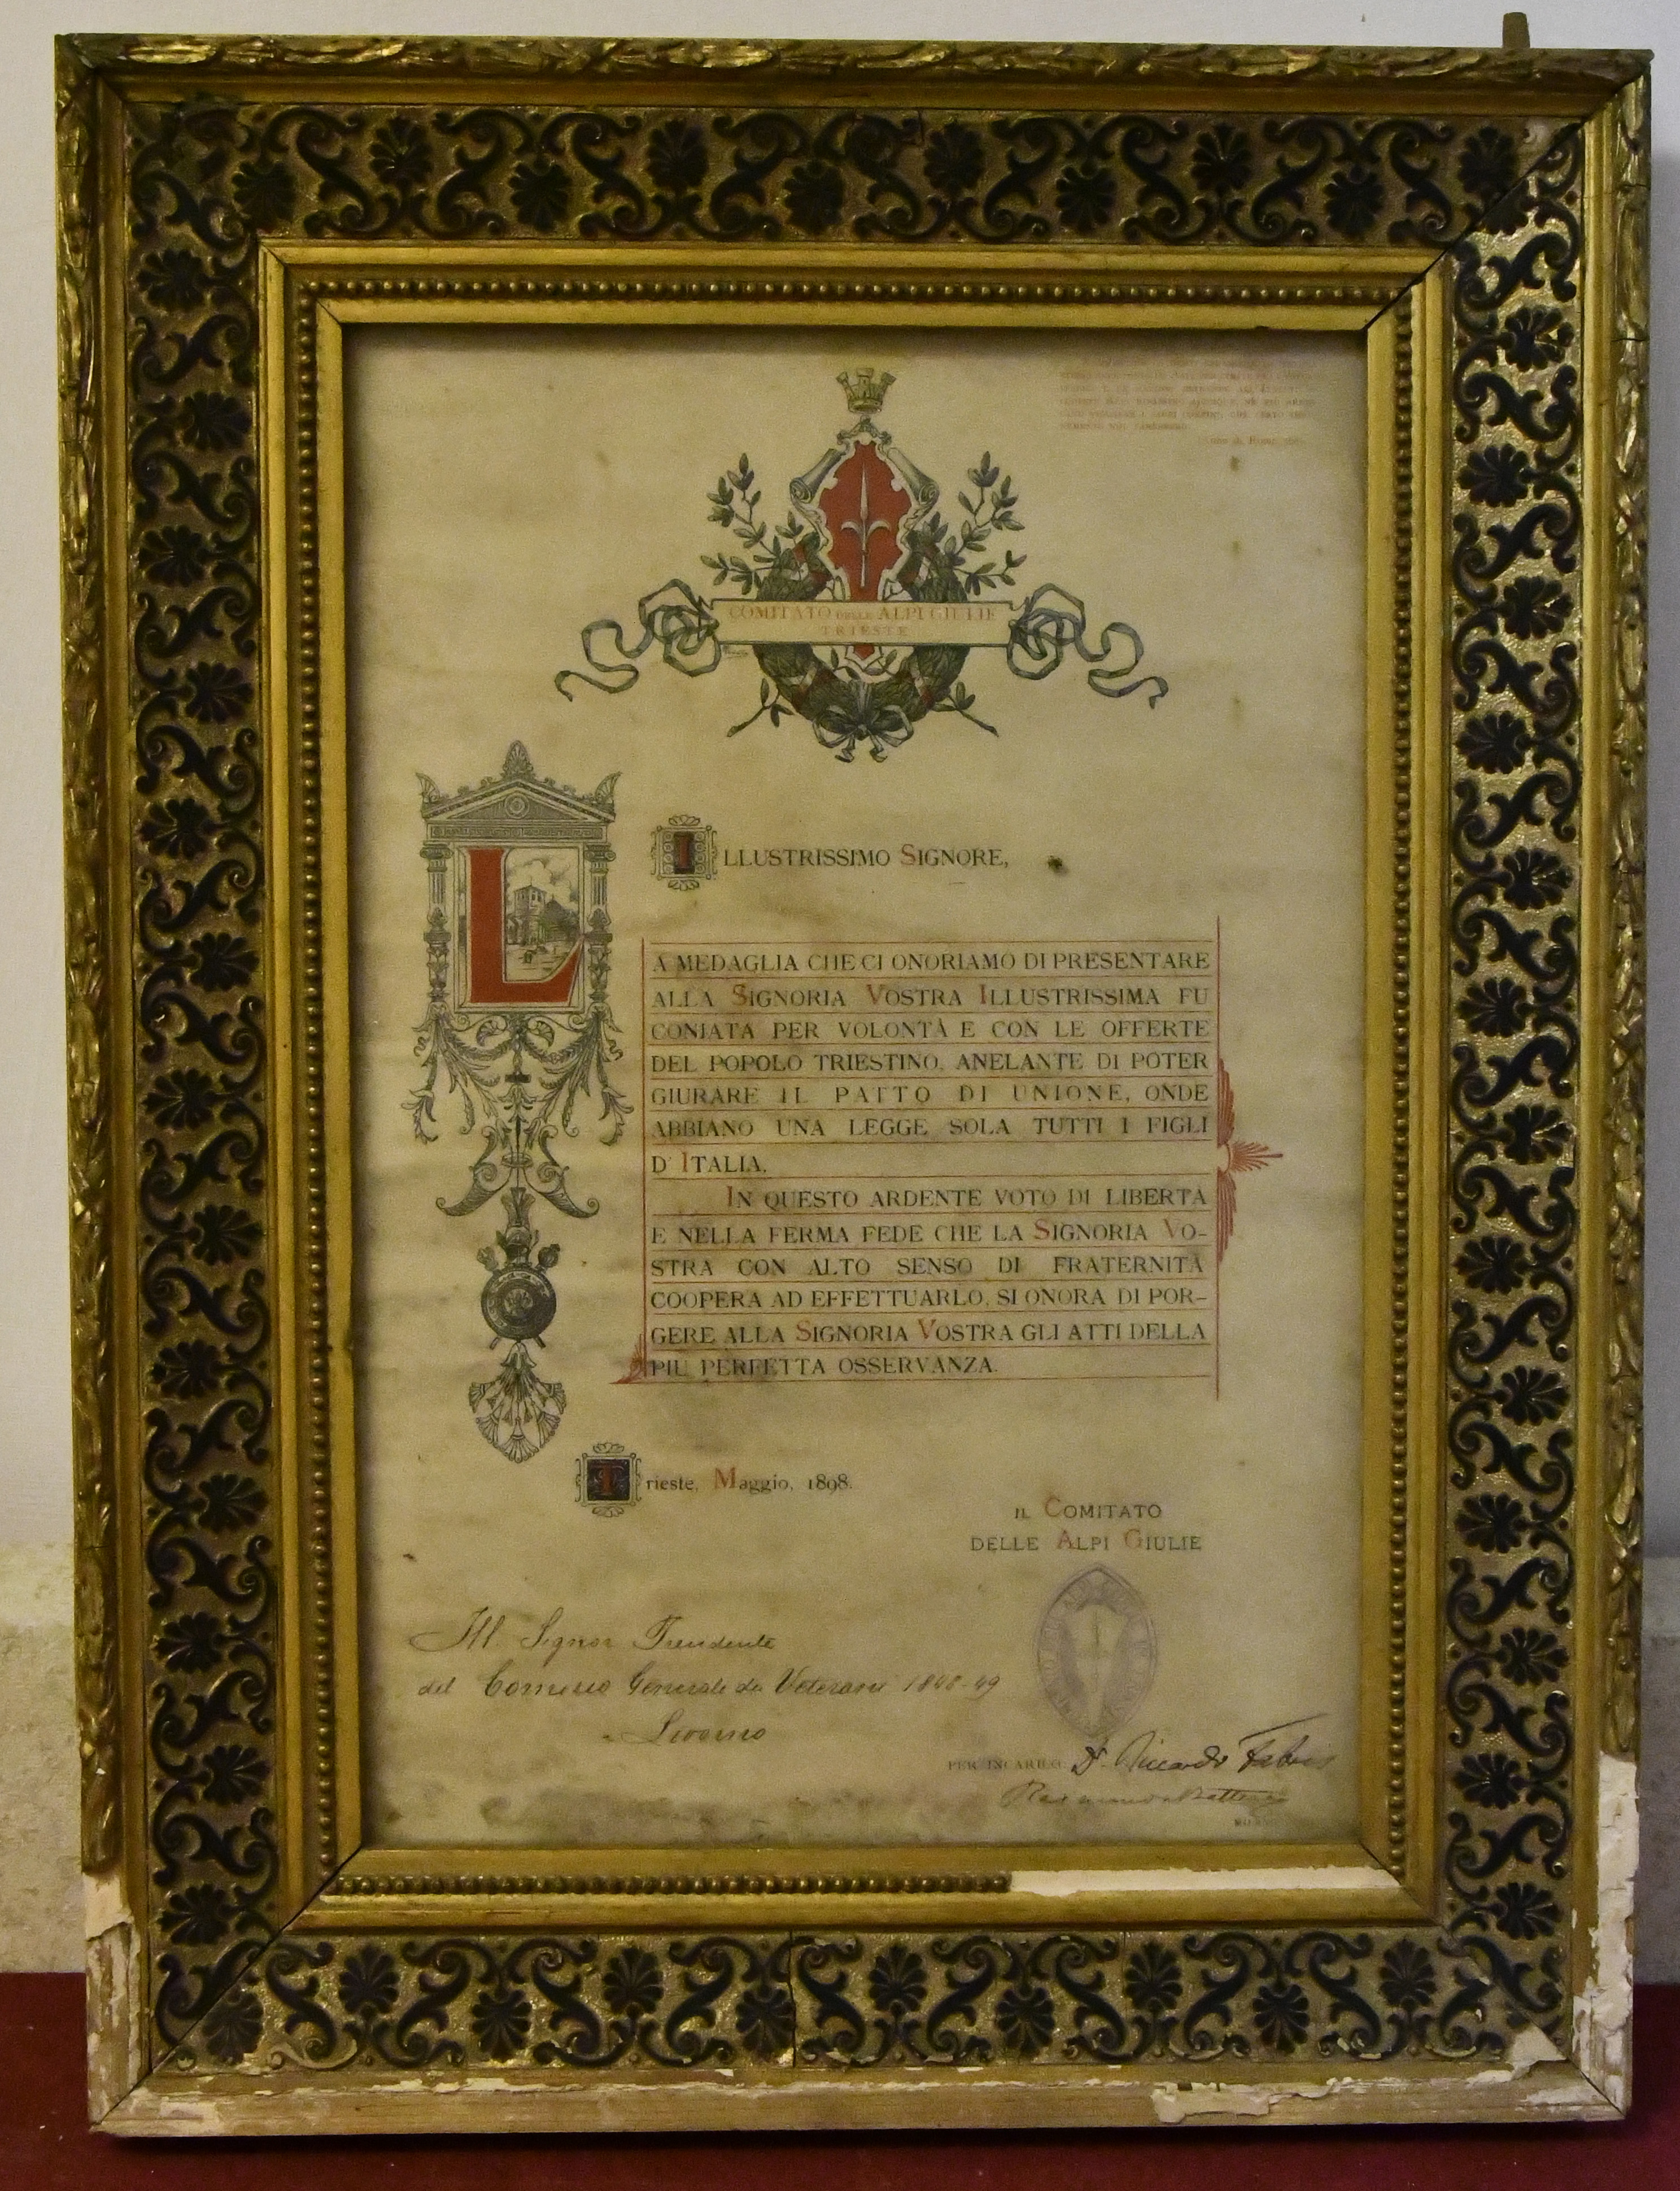 COMITATO DELLE ALPI GIULIE
TRIESTE
ILLUSTRISSIMO SIGNORE,
LA MEDAGLIA CHE CI ONORIAMO DI PRESENTARE
ALLA SIGNORIA VOSTRA ILLUSTRISSIMA FU
CONIATA PER VOLONTÀ E CON LE OFFERTE
DEL POPOLO TRIESTINO, ANELANTE DI POTER
GIURARE IL PATTO DI UNIONE, ONDE
ABBIANO UNA LEGGE SOLA TUTTI I FIGLI
D'ITALIA.
IN QUESTO ARDENTE VOTO DI LIBERTÀ
E NELLA FERMA FEDE CHE LA SIGNORIA VO-
STRA CON ALTO SENSO DI FRATERNITÀ
COOPERA AD EFFETTUARLO, SI ONORA DI POR-
GERE ALLA SIGNORIA VOSTRA GLI ATTI DELLA
PIÙ PERFETTA OSSERVANZA.
Trieste, Maggio, 1898.
IL COMITATO
DELLE ALPI GIULIE
Ill. Signor Presidente
del Comizio Generale dei Veterani 1848-49
Livorno
PER INCARICO: Dr. Riccardo Fabris